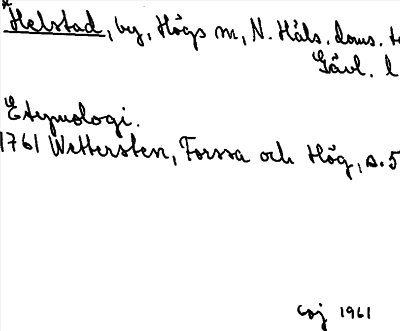 *Helstad, by, Högs sn, N. Häls. doms. t
Gävl. l
Etymologi.
1761 Wettersten, Forssa och Hög, s. 5
1961